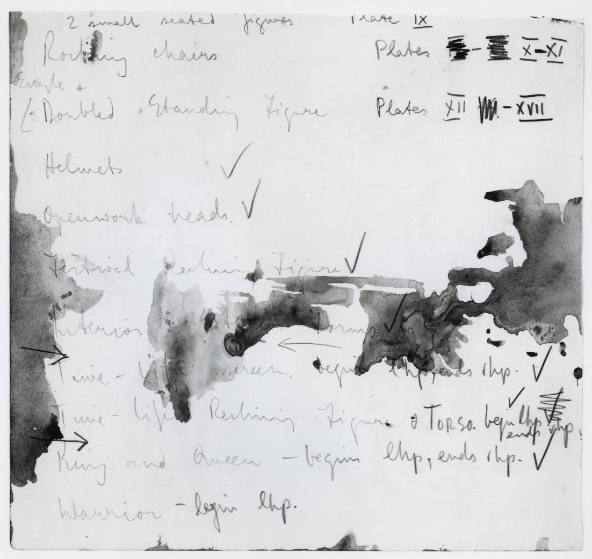 2 small seated figures Plate IX
Rocking chairs Plates - X-XI
Single +
Doubled Standing Figure Plates XII - XVII
Helmets
Openwork heads.
Festival Reclining Figure
Interior forms
Time - screen. begins lhp, ends rhp.
Time-Life Reclining Figure & TORSO begin lhp ends rhp.
King and Queen - begins lhp, ends rhp.
Warrior - begin lhp.